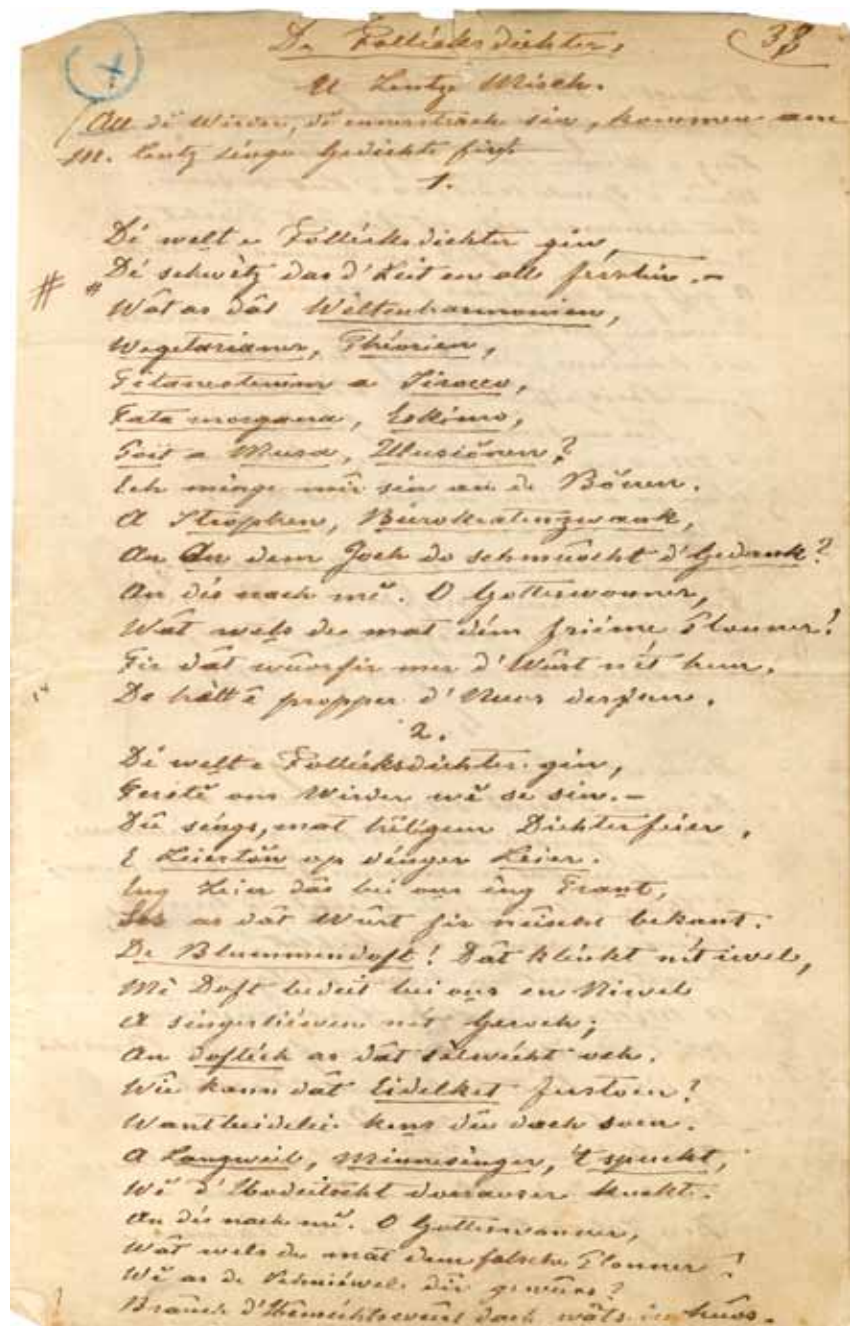 +
38
De Follieksdichter,
U Lentze Misch.
(All dė Wieder, dė ennerstrach sin, kommen am
M. Lentz senge Gedichte fir)
1.
Dė wellt e Folleksdichter gin,
# # Dė schwètz das d'Leit en all ferstin. –
Wât as dât Weltenharmonien,
Wegetarianer, Théorien,
a Sirocco,
Fata morgana, Eskimo,
a Musa, Illusiŏnen?
Ech menge mir sin an de Bŏnen.
A Strophen, Bürokratenzwank,
An an dem Joch do schmuucht d'Gedank?
An die nach mĕ. O Gotteswonner,
Wat wels de mat dém frieme Plonner!
Fir dât wuurfir mer d'Wuurt nét hun,
14 Do hâlt ĕ propper d'Nues derfun.
2.
Dė wellt e Follėksdichter gin,
Ferstĕ ons Wirder wĕ se sin. –
Dû sengs, mat helligem Dichterfeier,
E Leiertŏn op denger Leier.
Eng Leier dâs bei ons êng Frant,
Sos as dât Wuurt fir neischt bekant.
De Blummendoft! Dât klenkt nét iwel,
Mĕ Doft bedeit bei ons en Niwel
A nét Geroch;
An doftėch as dât och.
Wie kann dât Eidelket ferstoen?
Want Eidelei kens du dach soen.
A Langweil, Minnesinger, 't spuckt,
Wĕ d' kuckt.
An die nach mĕ. O Gotteswonner,
Wât wels de mat dem falsche Plonner!
Wĕ as de Schniewel dir gewuus?
d' dach nâts im Huus.